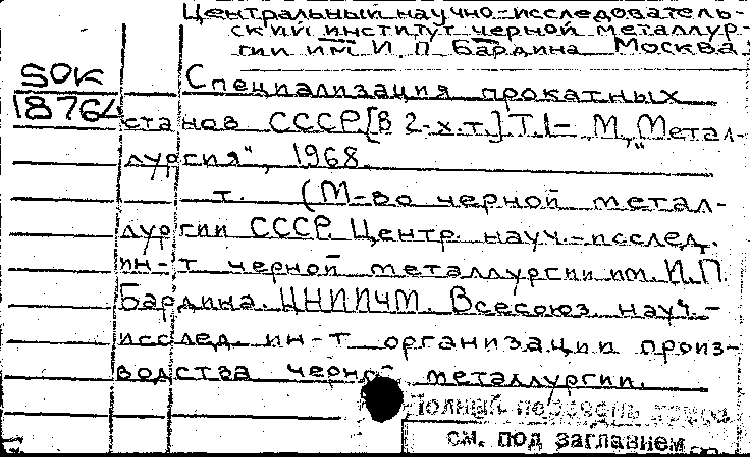 Центральный научно-исследователь-
ский институт черной металлур-
гии им И. П. Бардина Москва.
SOK
18764
Специализация прокатных
станов СССР.[В 2-х.т.].Т.1- М, "Метал-
лургия", 1968.
т. (М-во черной метал-
лургии СССР. Центр. науч.-исслед.
ин-т черной металлургии им. И.П.
Бардина. ЦНИИЧМ. Всесоюз. науч.-
исслед. ин-т организации произ-
водства черной металлургии.
Полный перечень
см. под заглавием